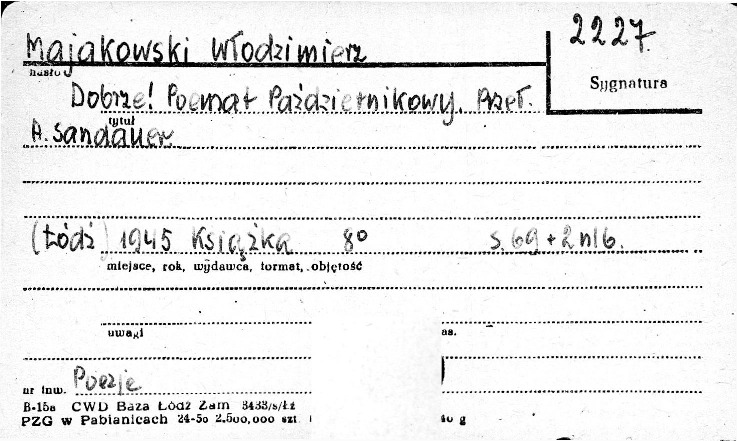 Majakowski Włodzimierz
2227.
hasło
Sygnatura
Dobrze! Poemat Październikowy. Przeł.
tytuł
A. Sandauer
(Łódź) 1945 Książka 8° s. 69 + 2 nlb.
miejsce, rok, wydawca, format, objętość
uwagi
as.
nr inw. Poezje
B-15a CWD Baza Łódź Zam 3433/s/Łż
PZG w Pabianicach 24-50 2.500,000 szt
40 g